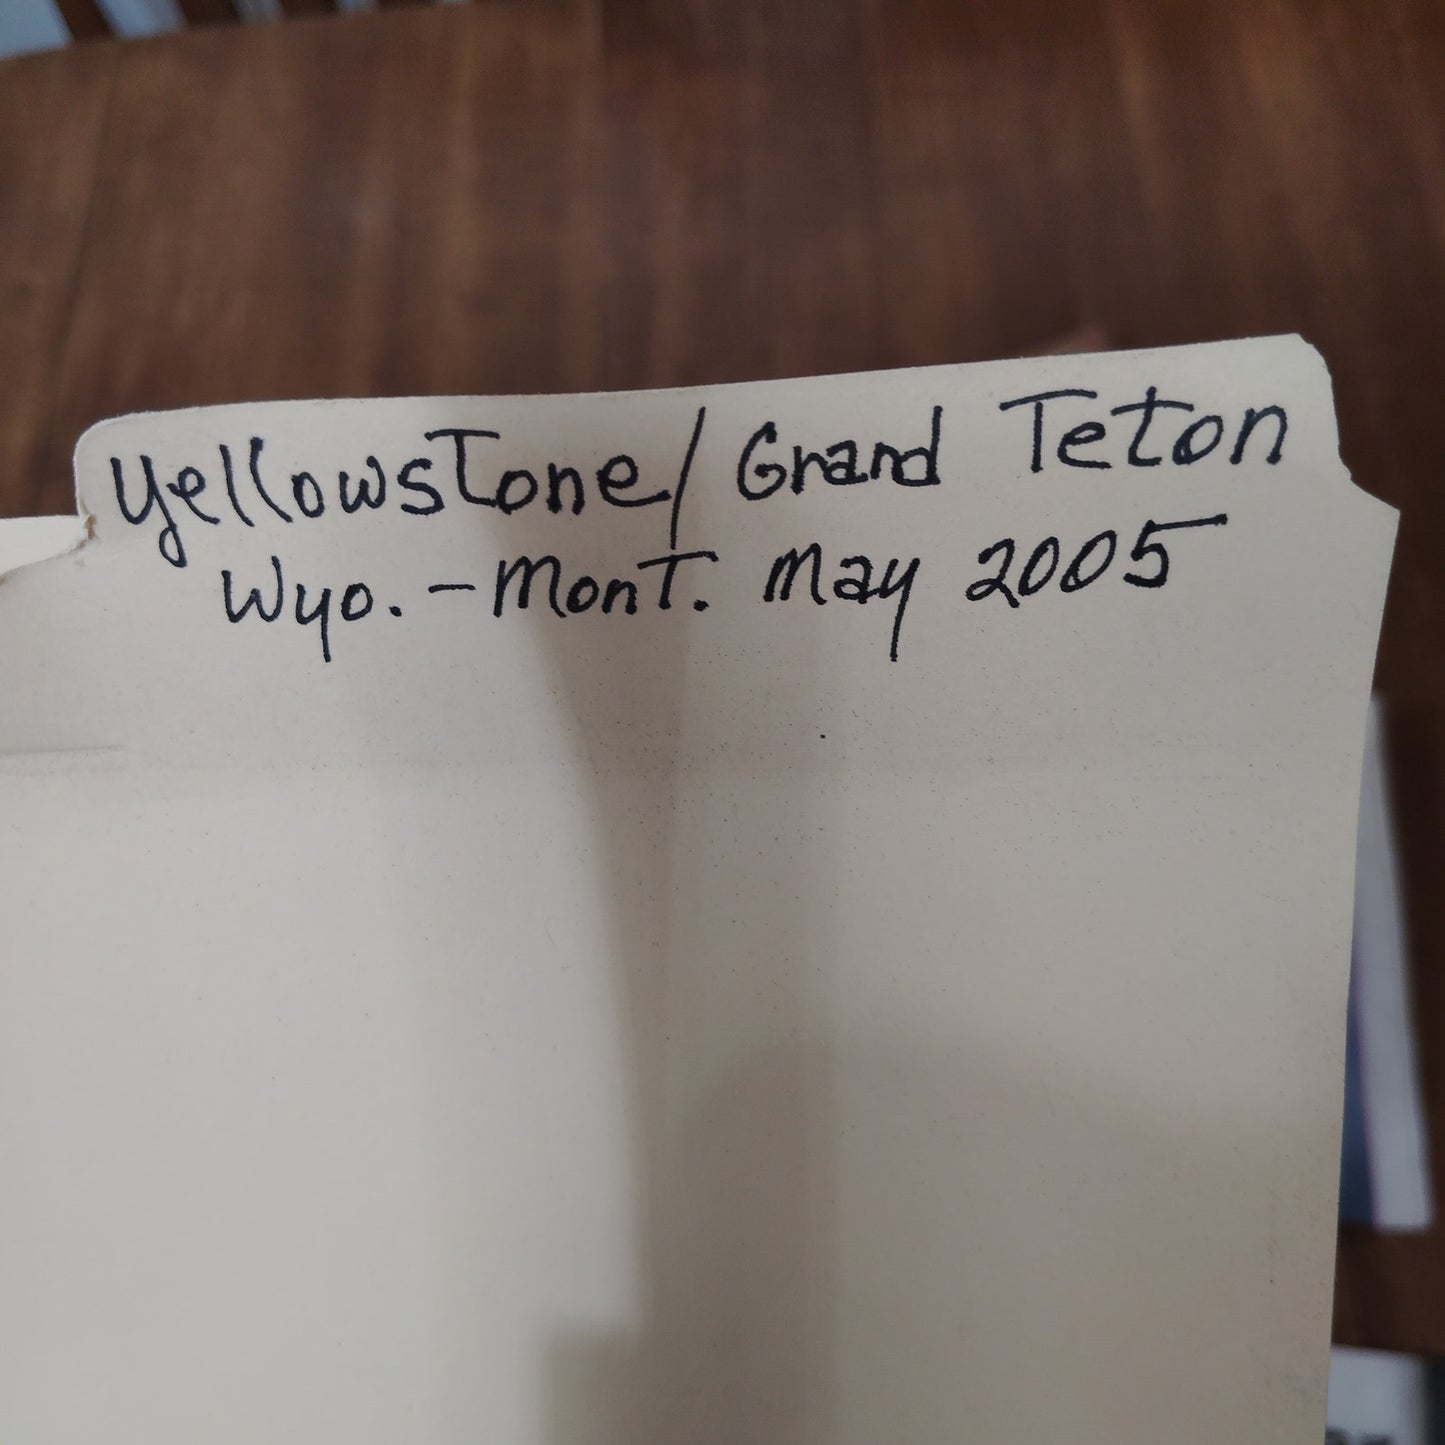 Yellowstone/Grand Teton
Wyo. - Mont. May 2005